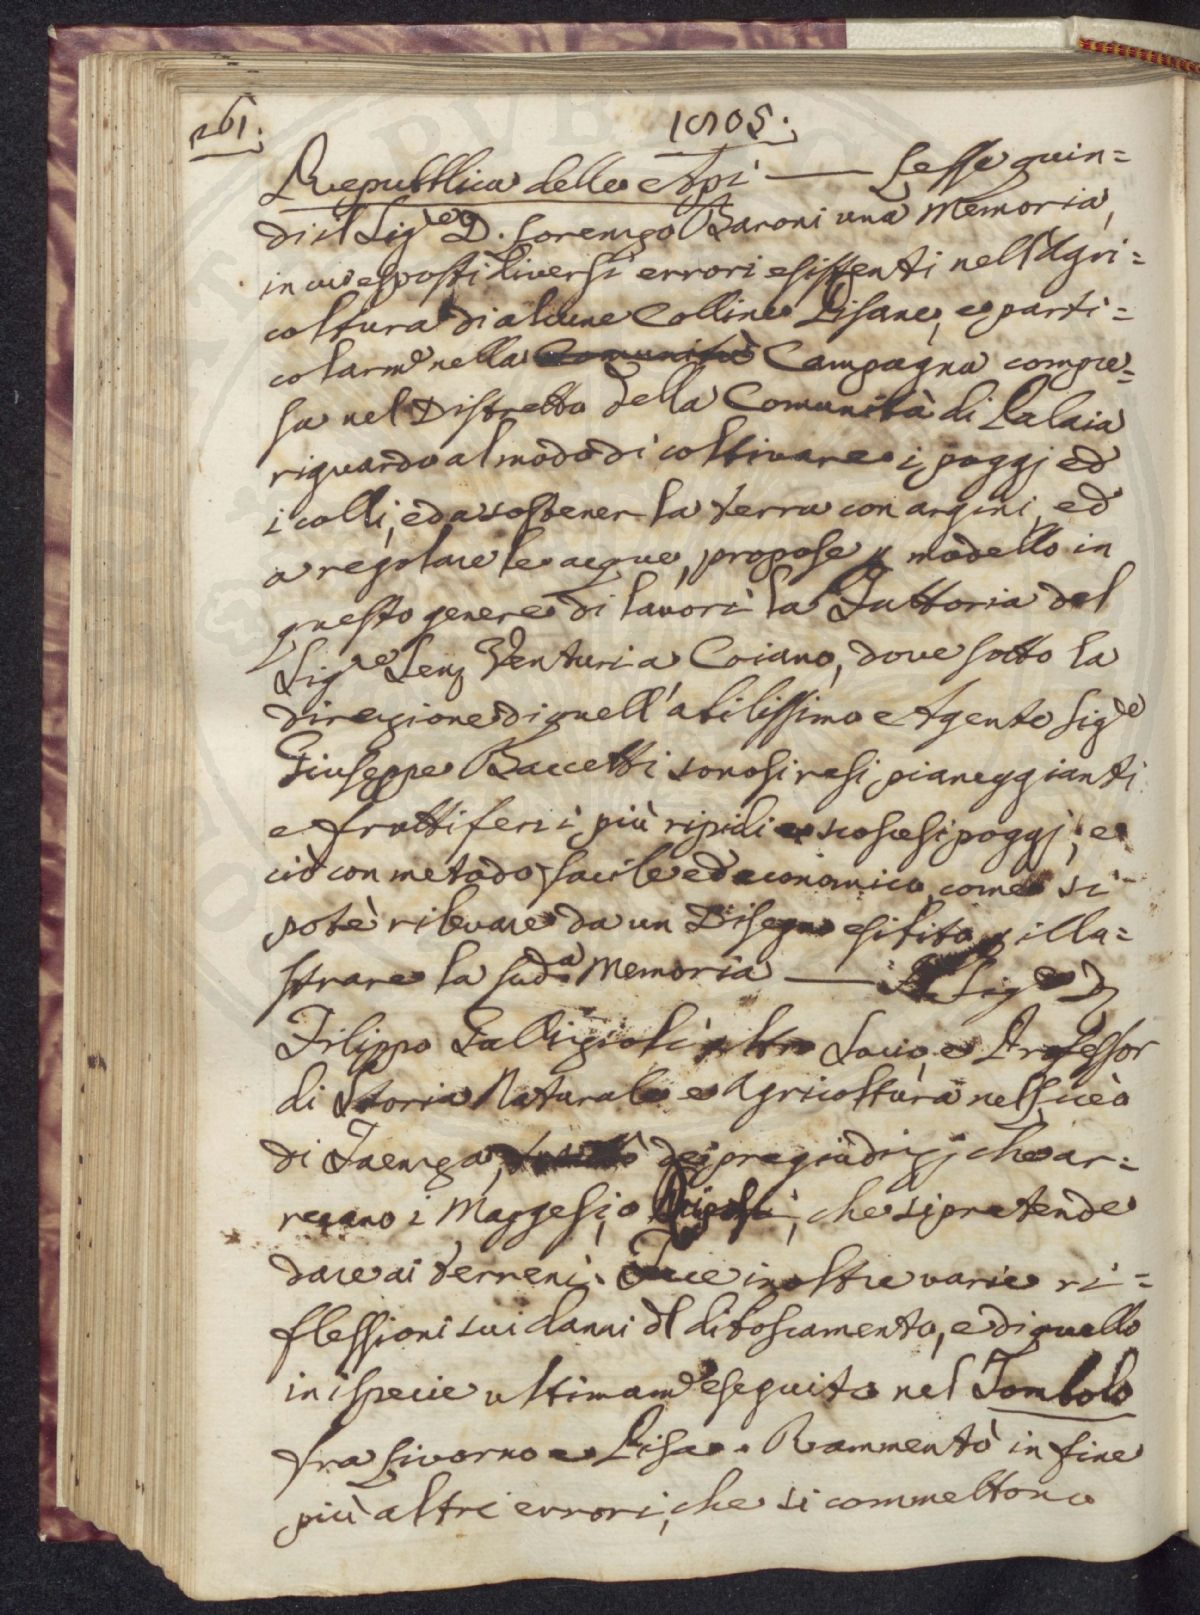 261.
1805.
Repubblica delle Api — Lesse quin=
di il Sig.re D. Lorenzo Baroni una Memoria,
in cui esposti diversi errori esistenti nell'Agri=
coltura di alcune Colline Pisane, e parti=
colarm.e nella Comunità Campagna compre=
sa nel Distretto della Comunità di Palaia
riguardo al modo di coltivare i poggj ed
i colli, ed a sostener la terra con argini, ed
a regolare le acque, propose p modello in
questo genere di lavori la Fattoria del
Sig.re Venturi a Coiano, dove sotto la
direzione di quell'abilissimo Agente Sig.re
Giuseppe Baccetti sonosi resi pianeggianti
e fruttiferi i più ripidi e scoscesi poggj, e
ciò con metodo facile ed economico, come si
potè rilevare da un Disegno esibito p illu=
strare la sud.a Memoria — Il Sig.re D.
Filippo Gallizioli altro Socio, e Professor
di Storia Naturale e Agricoltura nel Liceo
di Faenza, dei pregiudizj che ar=
recano i Maggesi, o Riposi, che si pretende
dare ai terreni. Fece inoltre varie ri=
flessioni sui danni del diboscamento, e di quello
in ispecie ultimam.e eseguito nel Tombolo
fra Livorno e Pisa. Rammentò in fine
più altri errori, che si commettono